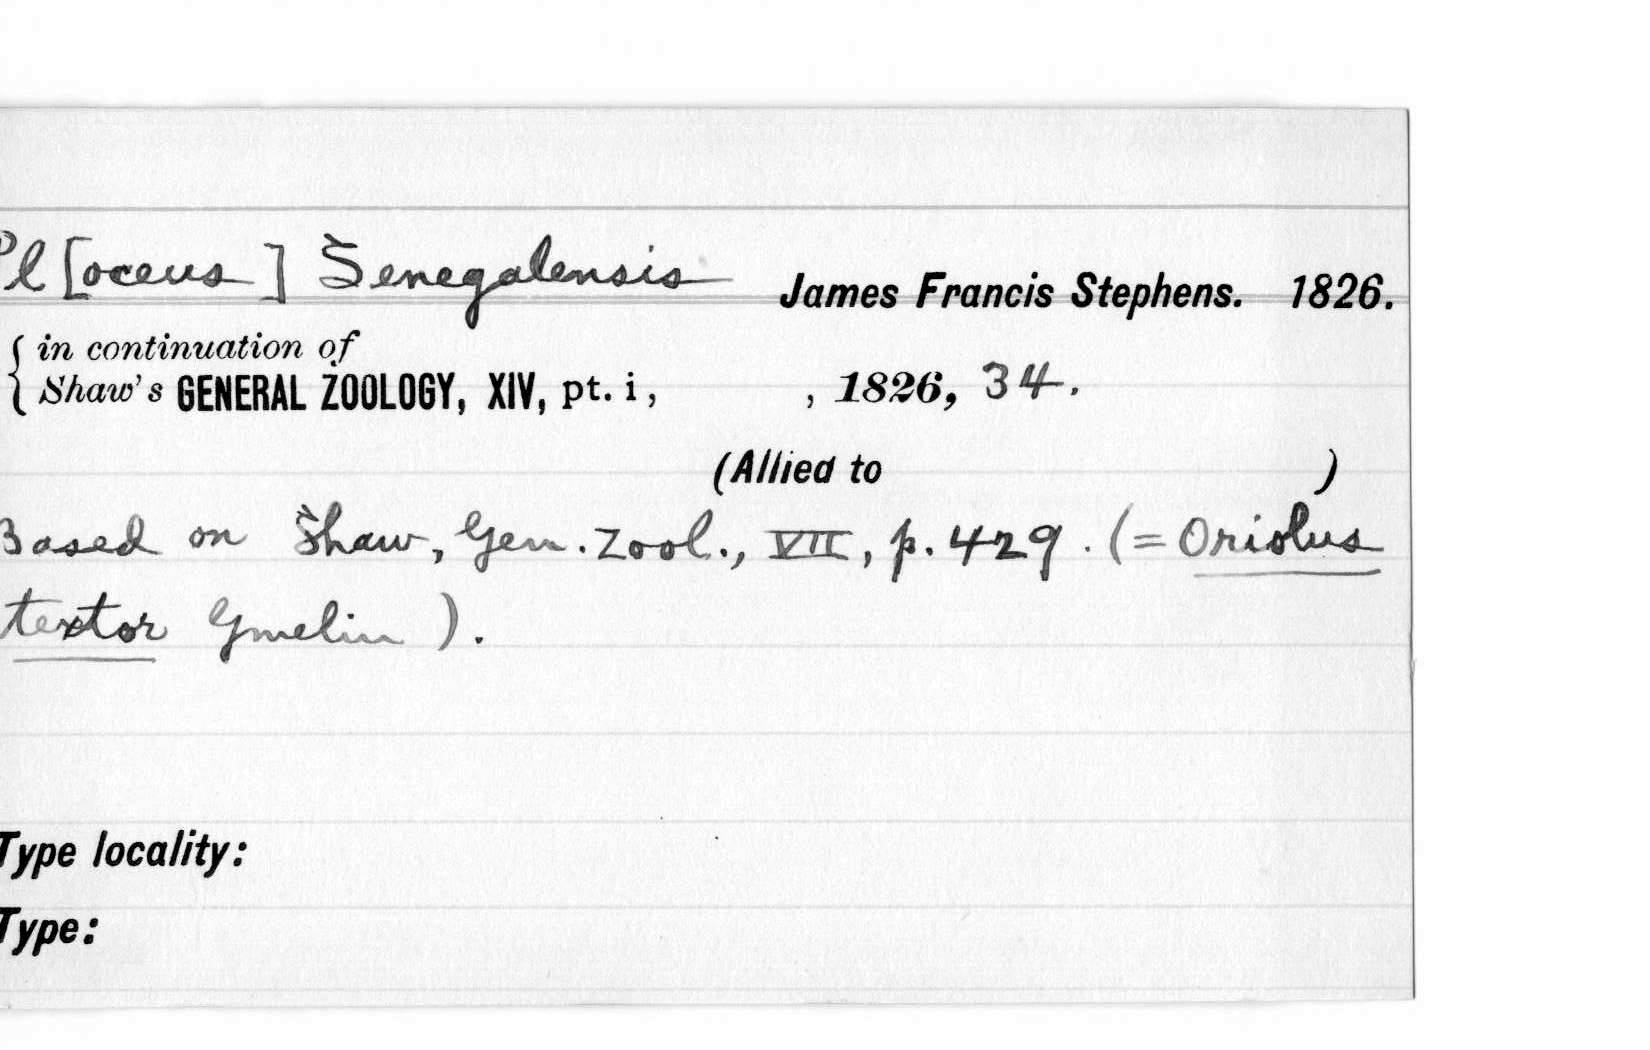 Pl[oceus] Senegalensis James Francis Stephens. 1826.
{ in continuation of
Shaw's GENERAL ZOOLOGY, XIV, pt. i, , 1826, 34.
(Allied to )
Based on Shaw, Gen. Zool., VII, p. 429. (= Oriolus
textor Gmelin ).
Type locality:
Type: